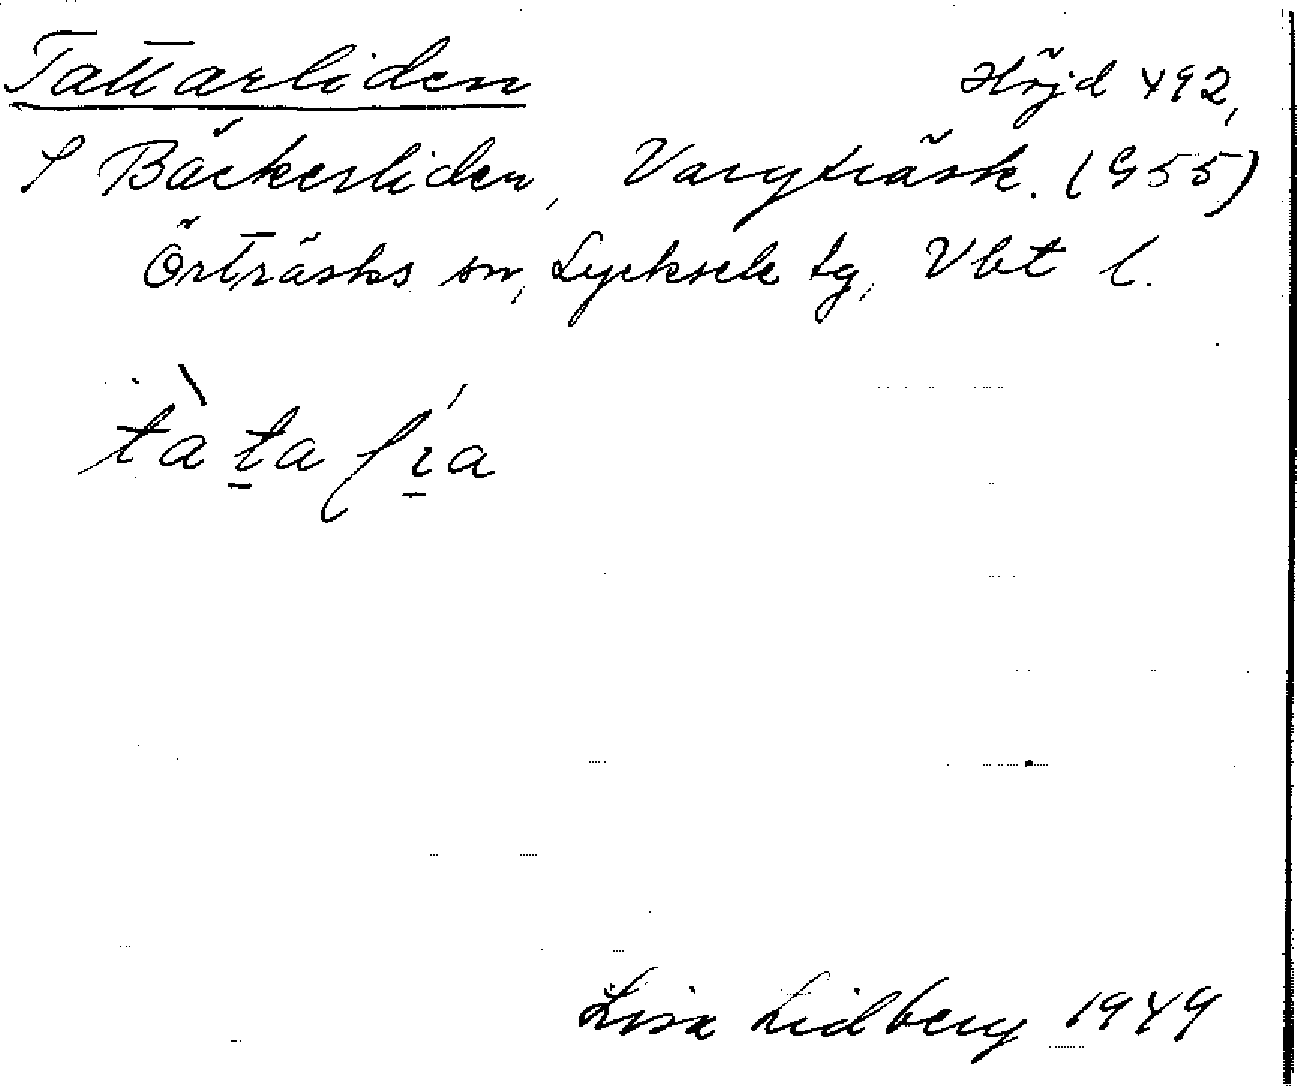 Tattarliden Höjd 492,
S Bäckerliden, Vargträsk. (955)
Örträsks sn, Lycksele tg, Vbt l.
tàta lía
Lisa Lidberg 1949